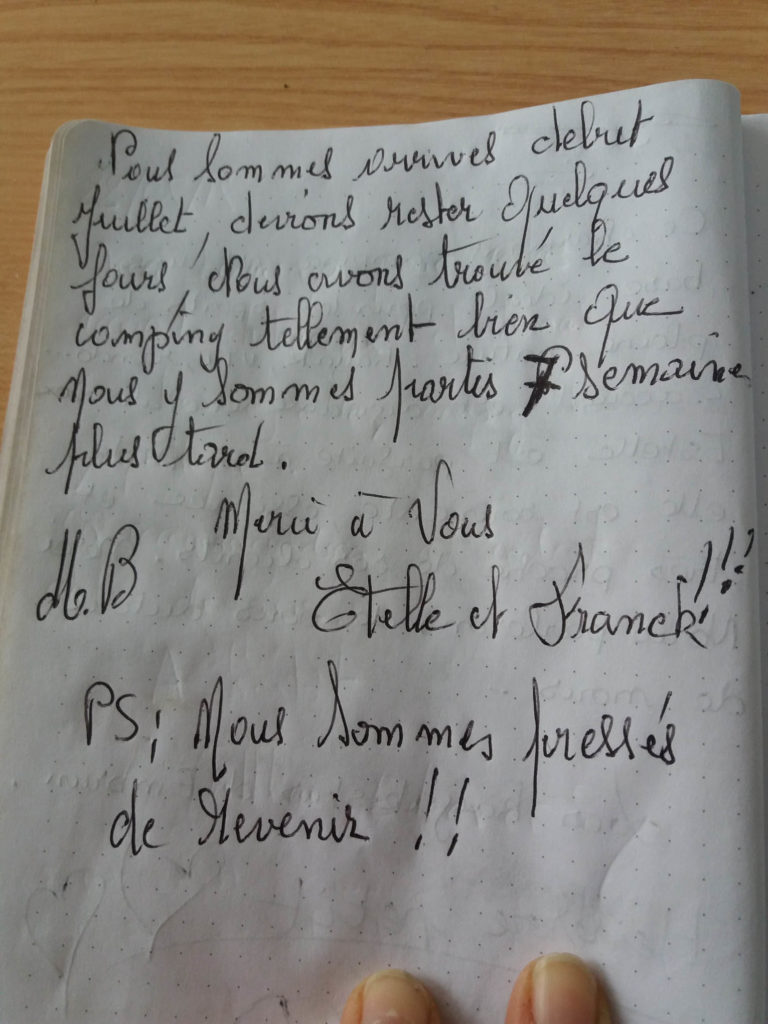 Nous sommes arrives debut
Juillet, devions rester Quelques
Jours, Nous avons trouvé le
camping tellement bien que
Nous y sommes partis 7 semaine
plus tard.
Merci à Vous
M.B
Etelle et Franck!!!
PS; Nous sommes pressés
de revenir !!